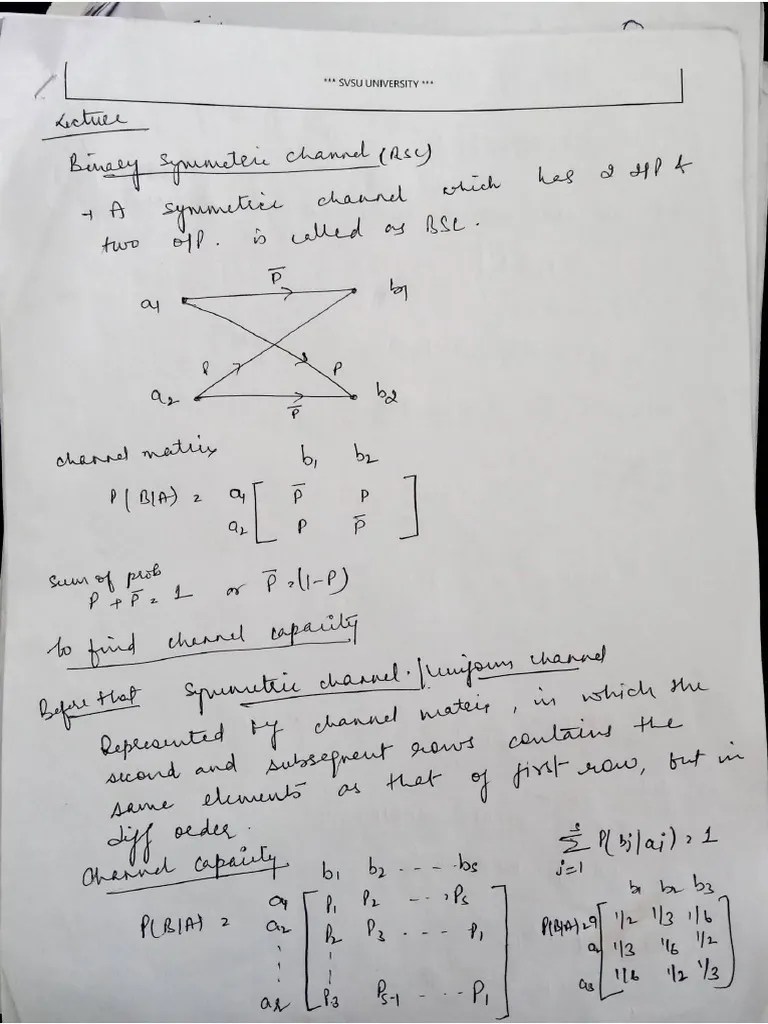 *** SVSU UNIVERSITY ***
Lecture
Binary Symmetric Channel (BSC)
→ A symmetric channel which has 2 I/P &
two o/p. is called as BSC.
P̅
a1 b1
P P
a2 b2
P̅
channel matrix b1 b2
P(B|A) = a1 [ P̅ P ]
a2 [ P P̅ ]
Sum of prob
P + P̅ = 1 or P̅ = (1-P)
To find channel capacity
Before that Symmetric channel / Uniform channel
Represented by channel matrix, in which the
second and subsequent rows contains the
same elements as that of first row, but in
diff order.
Channel capacity
s
Σ P(bj|ai) = 1
j=1
b1 b2 ---- bs
a1 [ P1 P2 --- Ps ]
P(B|A) = a2 [ P2 P3 ---- P1 ]
[ P3 Ps-1 - --- P1 ]
b1 b2 b3
P(B|A) = a [ 1/2 1/3 1/6 ]
a [ 1/3 1/6 1/2 ]
a3 [ 1/6 1/2 1/3 ]